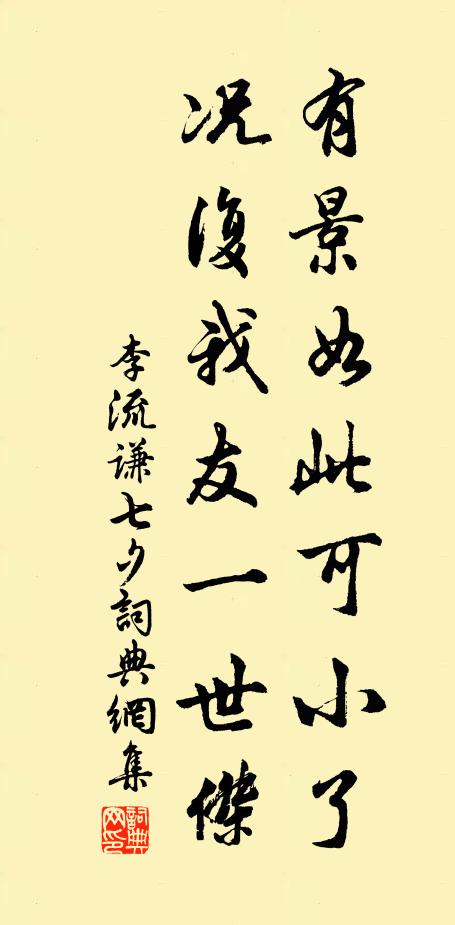 有景如此可小了
況復我友一世傑
李流謙七夕詞典網集
詞典網印